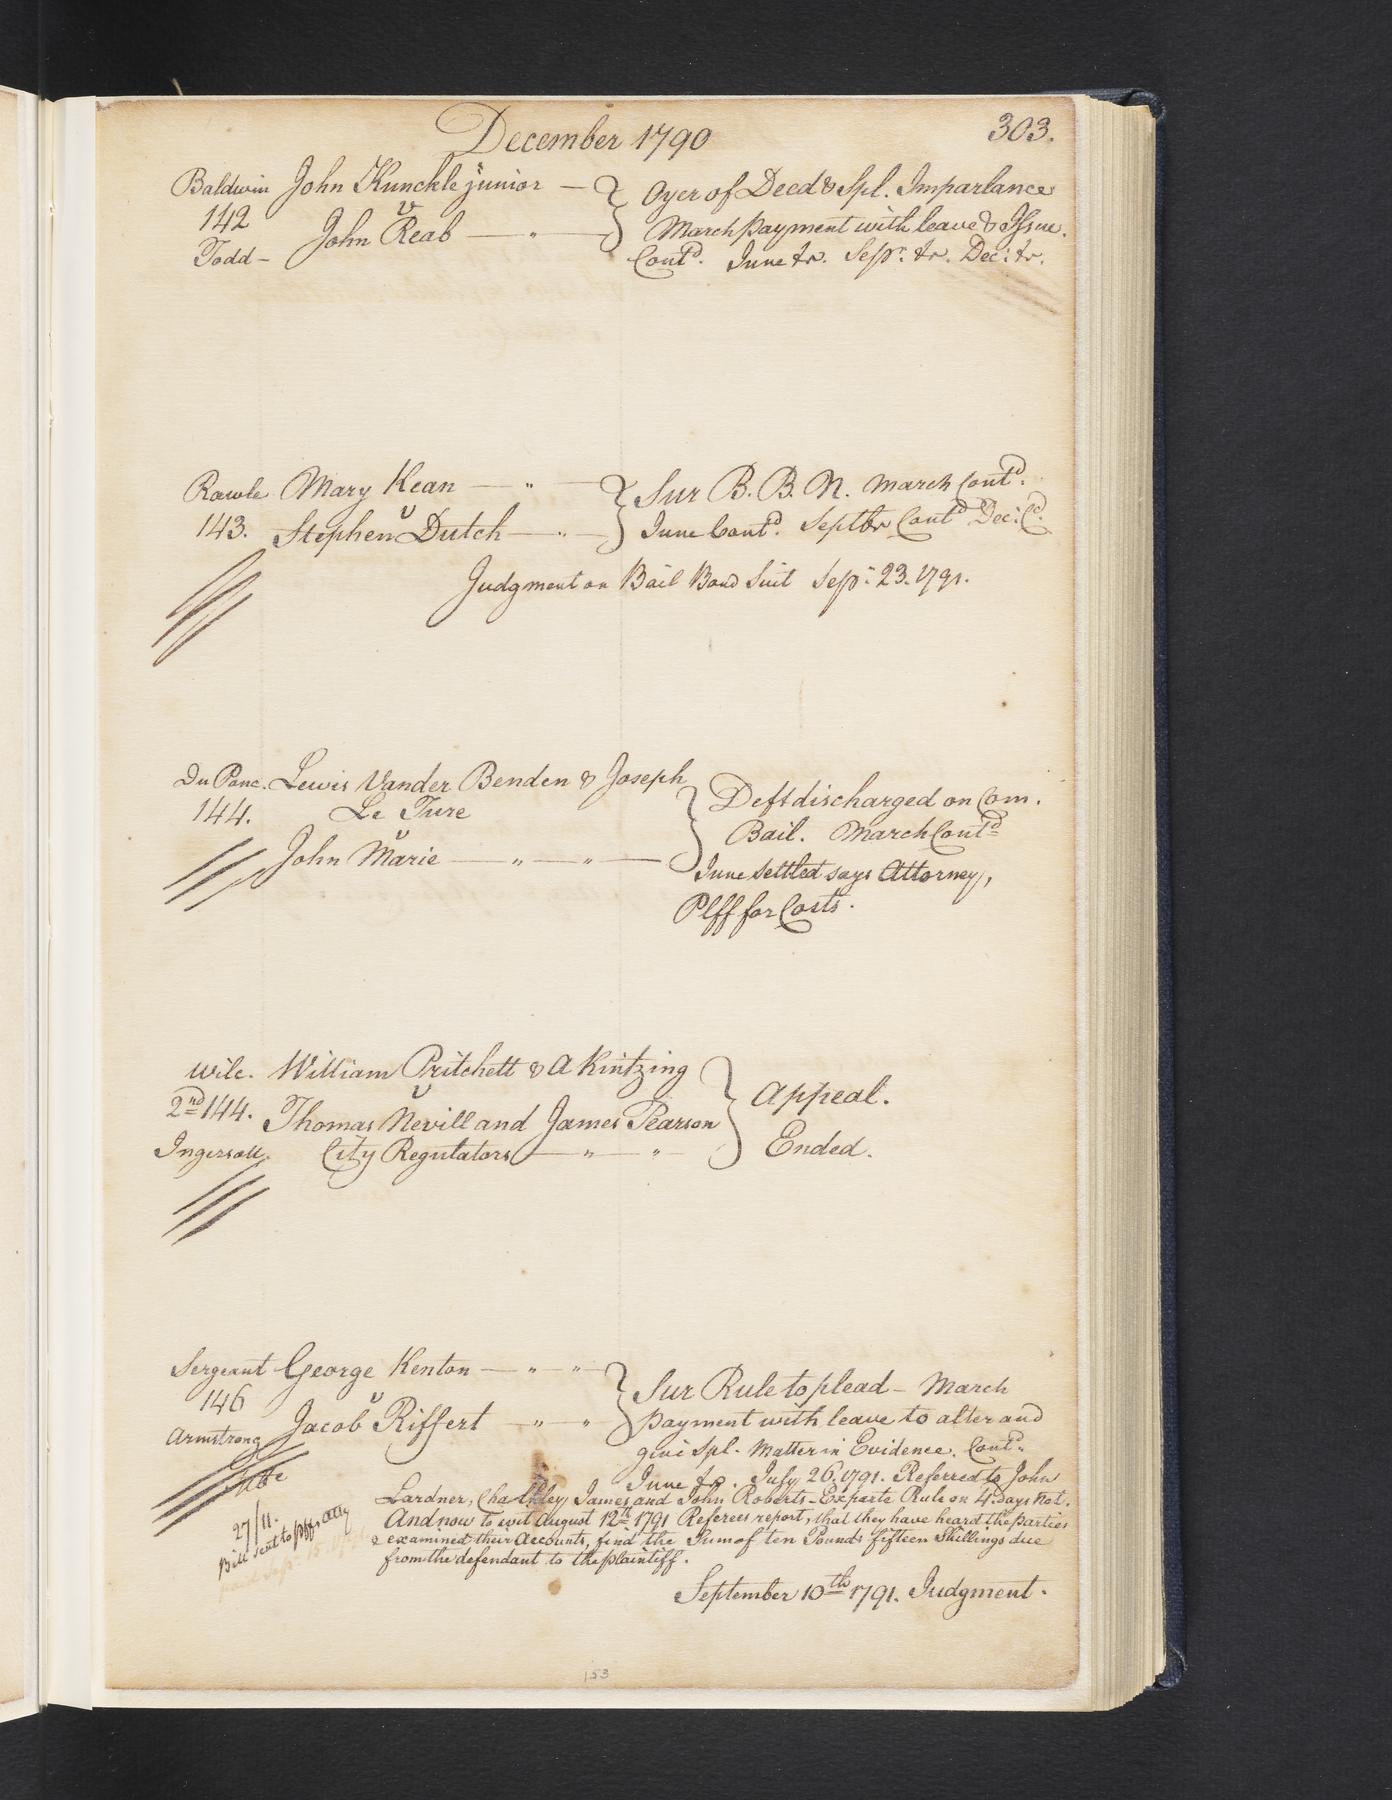 December 1790
303.
Baldwin John Kunckle junior — } Oyer of Deed & Spl. Imparlance
142 v March payment with leave & Issue.
Todd — John Reab — " — Contd. June &c. Sepr. &c. Dec: &c.
Rawle Mary Kean — " — } Sur B. B. N. March Contd.
143. v Stephen Dutch — " — June Contd. Septbr Contd Dec: Cd.
Judgment on Bail Bond Suit Sepr. 23. 1791.
Du Ponc. Lewis Vander Benden & Joseph } Deft discharged on Com.
144. Le Ture Bail. March Contd
v
John Marie — " — " — June settled says Attorney,
Plff for Costs.
Wilc. William Pritchett & A Kintzing } Appeal.
v
2nd 144. Thomas Nevill and James Pearson
Ingersoll. City Regulators — " — " — Ended.
Sergeant George Kenton — " " } Sur Rule to plead — March
146 v
Armstrong Jacob Riffert — " — " payment with leave to alter and
give Spl. Matter in Evidence. Contd.
June &c. July 26. 1791. Referred to John
Lardner, Chalkley James and John Roberts — Exparte Rule on 4 days not.
And now to wit August 12th 1791 Referees report, that they have heard the parties
& examined their Accounts, find the Sum of ten Pounds fifteen Shillings due
from the defendant to the plaintiff.
September 10th 1791. Judgment.
27/11.
Bill sent to plffs atty
153